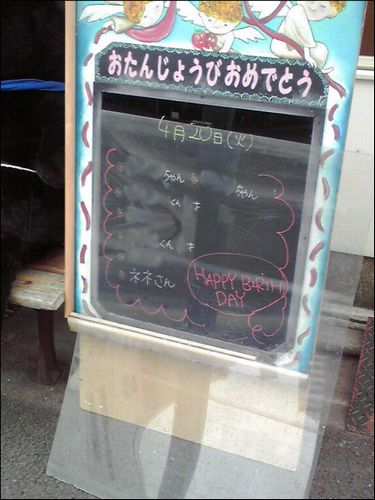 おたんじょうびおめでとう
4月20日(火)
ちゃん
ちゃん
くん 才
くん 才
ネネさん
HAPPY BIRTH
DAY